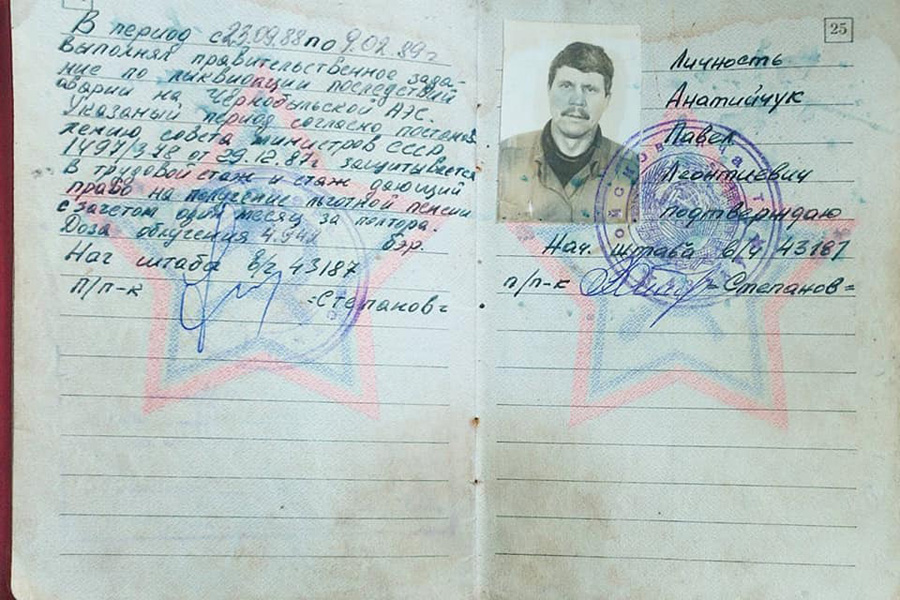 В период с 23.09.88 по 9.02.89г
выполнял правительственное зада-
ние по ликвидации последствий
аварии на Чернобыльской АЭС.
Указаный период согласно постанов-
лению совета министров СССР
1497/378 от 29.12.87г. защитывается
в трудовой стаж и стаж дающий
право на получение льготной пенсии
с зачетом один месяц за полтора.
Доза облучения бэр.
Нач штаба в/ч 43187
п/п-к =Степанов=
25
Личность
Анатийчук
Павел
Леонтиевич
подтверждаю
Нач. штаба в/ч 43187
п/п-к =Степанов=